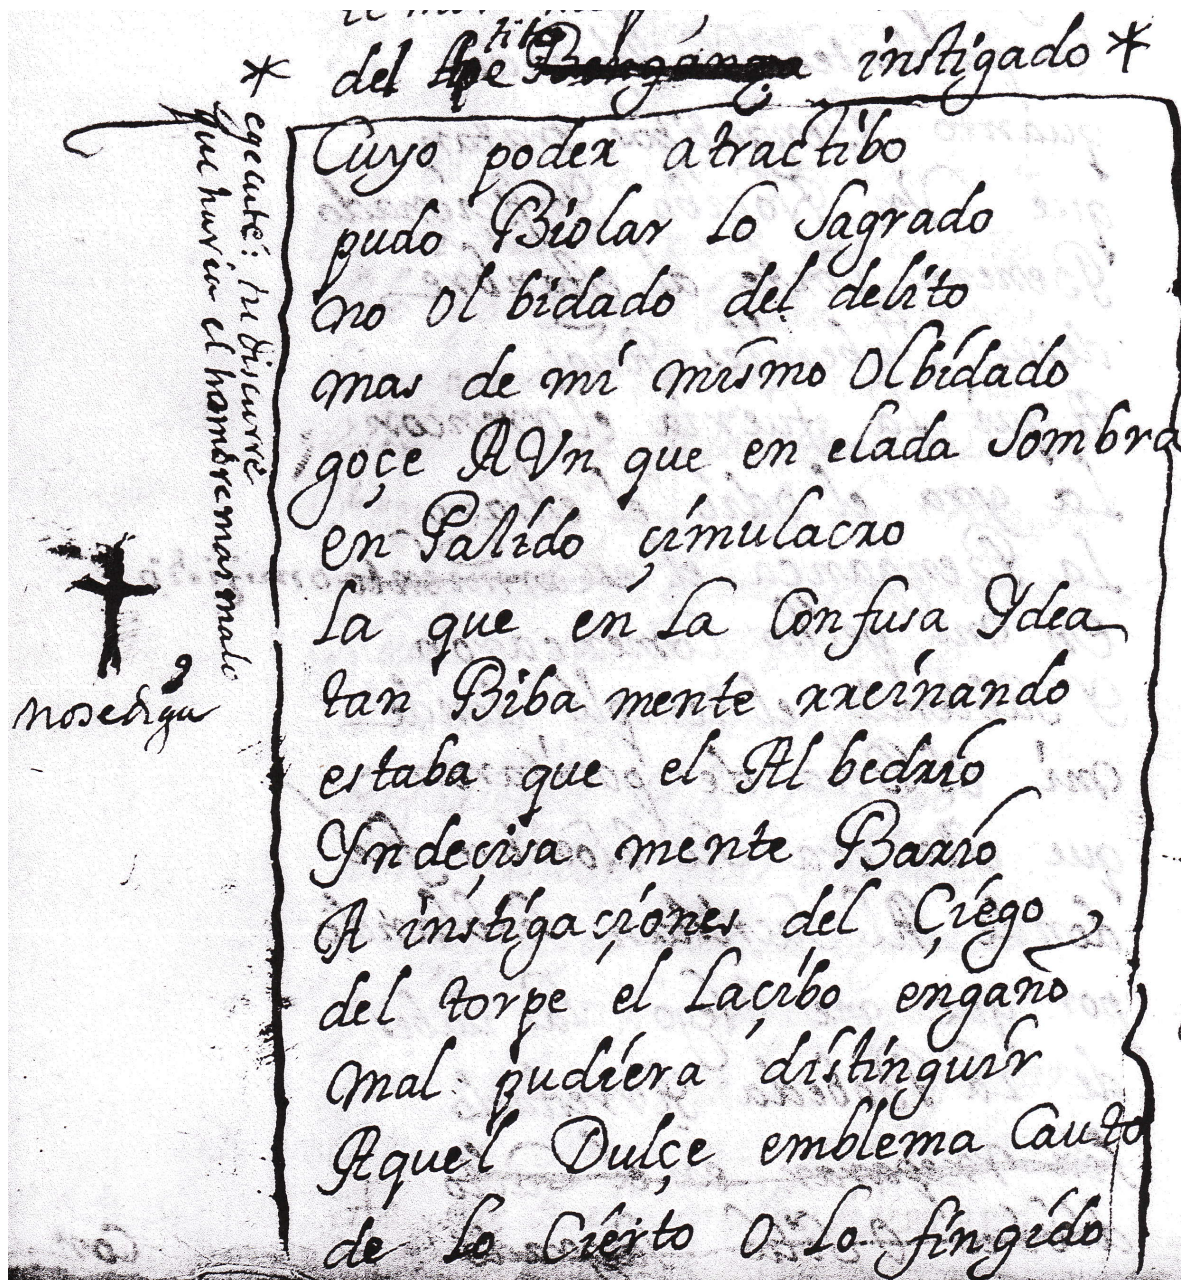 del Apetito instigado *
Cuyo poder atractibo
pudo Biolar lo Sagrado
no Ol bidado del delito
mas de mi mismo Olbidado
goçe AVn que en elada Sombra
en Palido çimulacro
la que en la Confusa Ydea
tan Biba mente rreinando
estaba que el Al bedrio
Yndeçisa mente Bario
A instigaçiones del Çiego
del torpe el laçibo engaño
mal pudiera distinguir
Aquel Dulçe emblema Cauto
de lo Cierto O lo fingido
* egecuté: tu discurre
que haria el hombre mas malo
no se diga